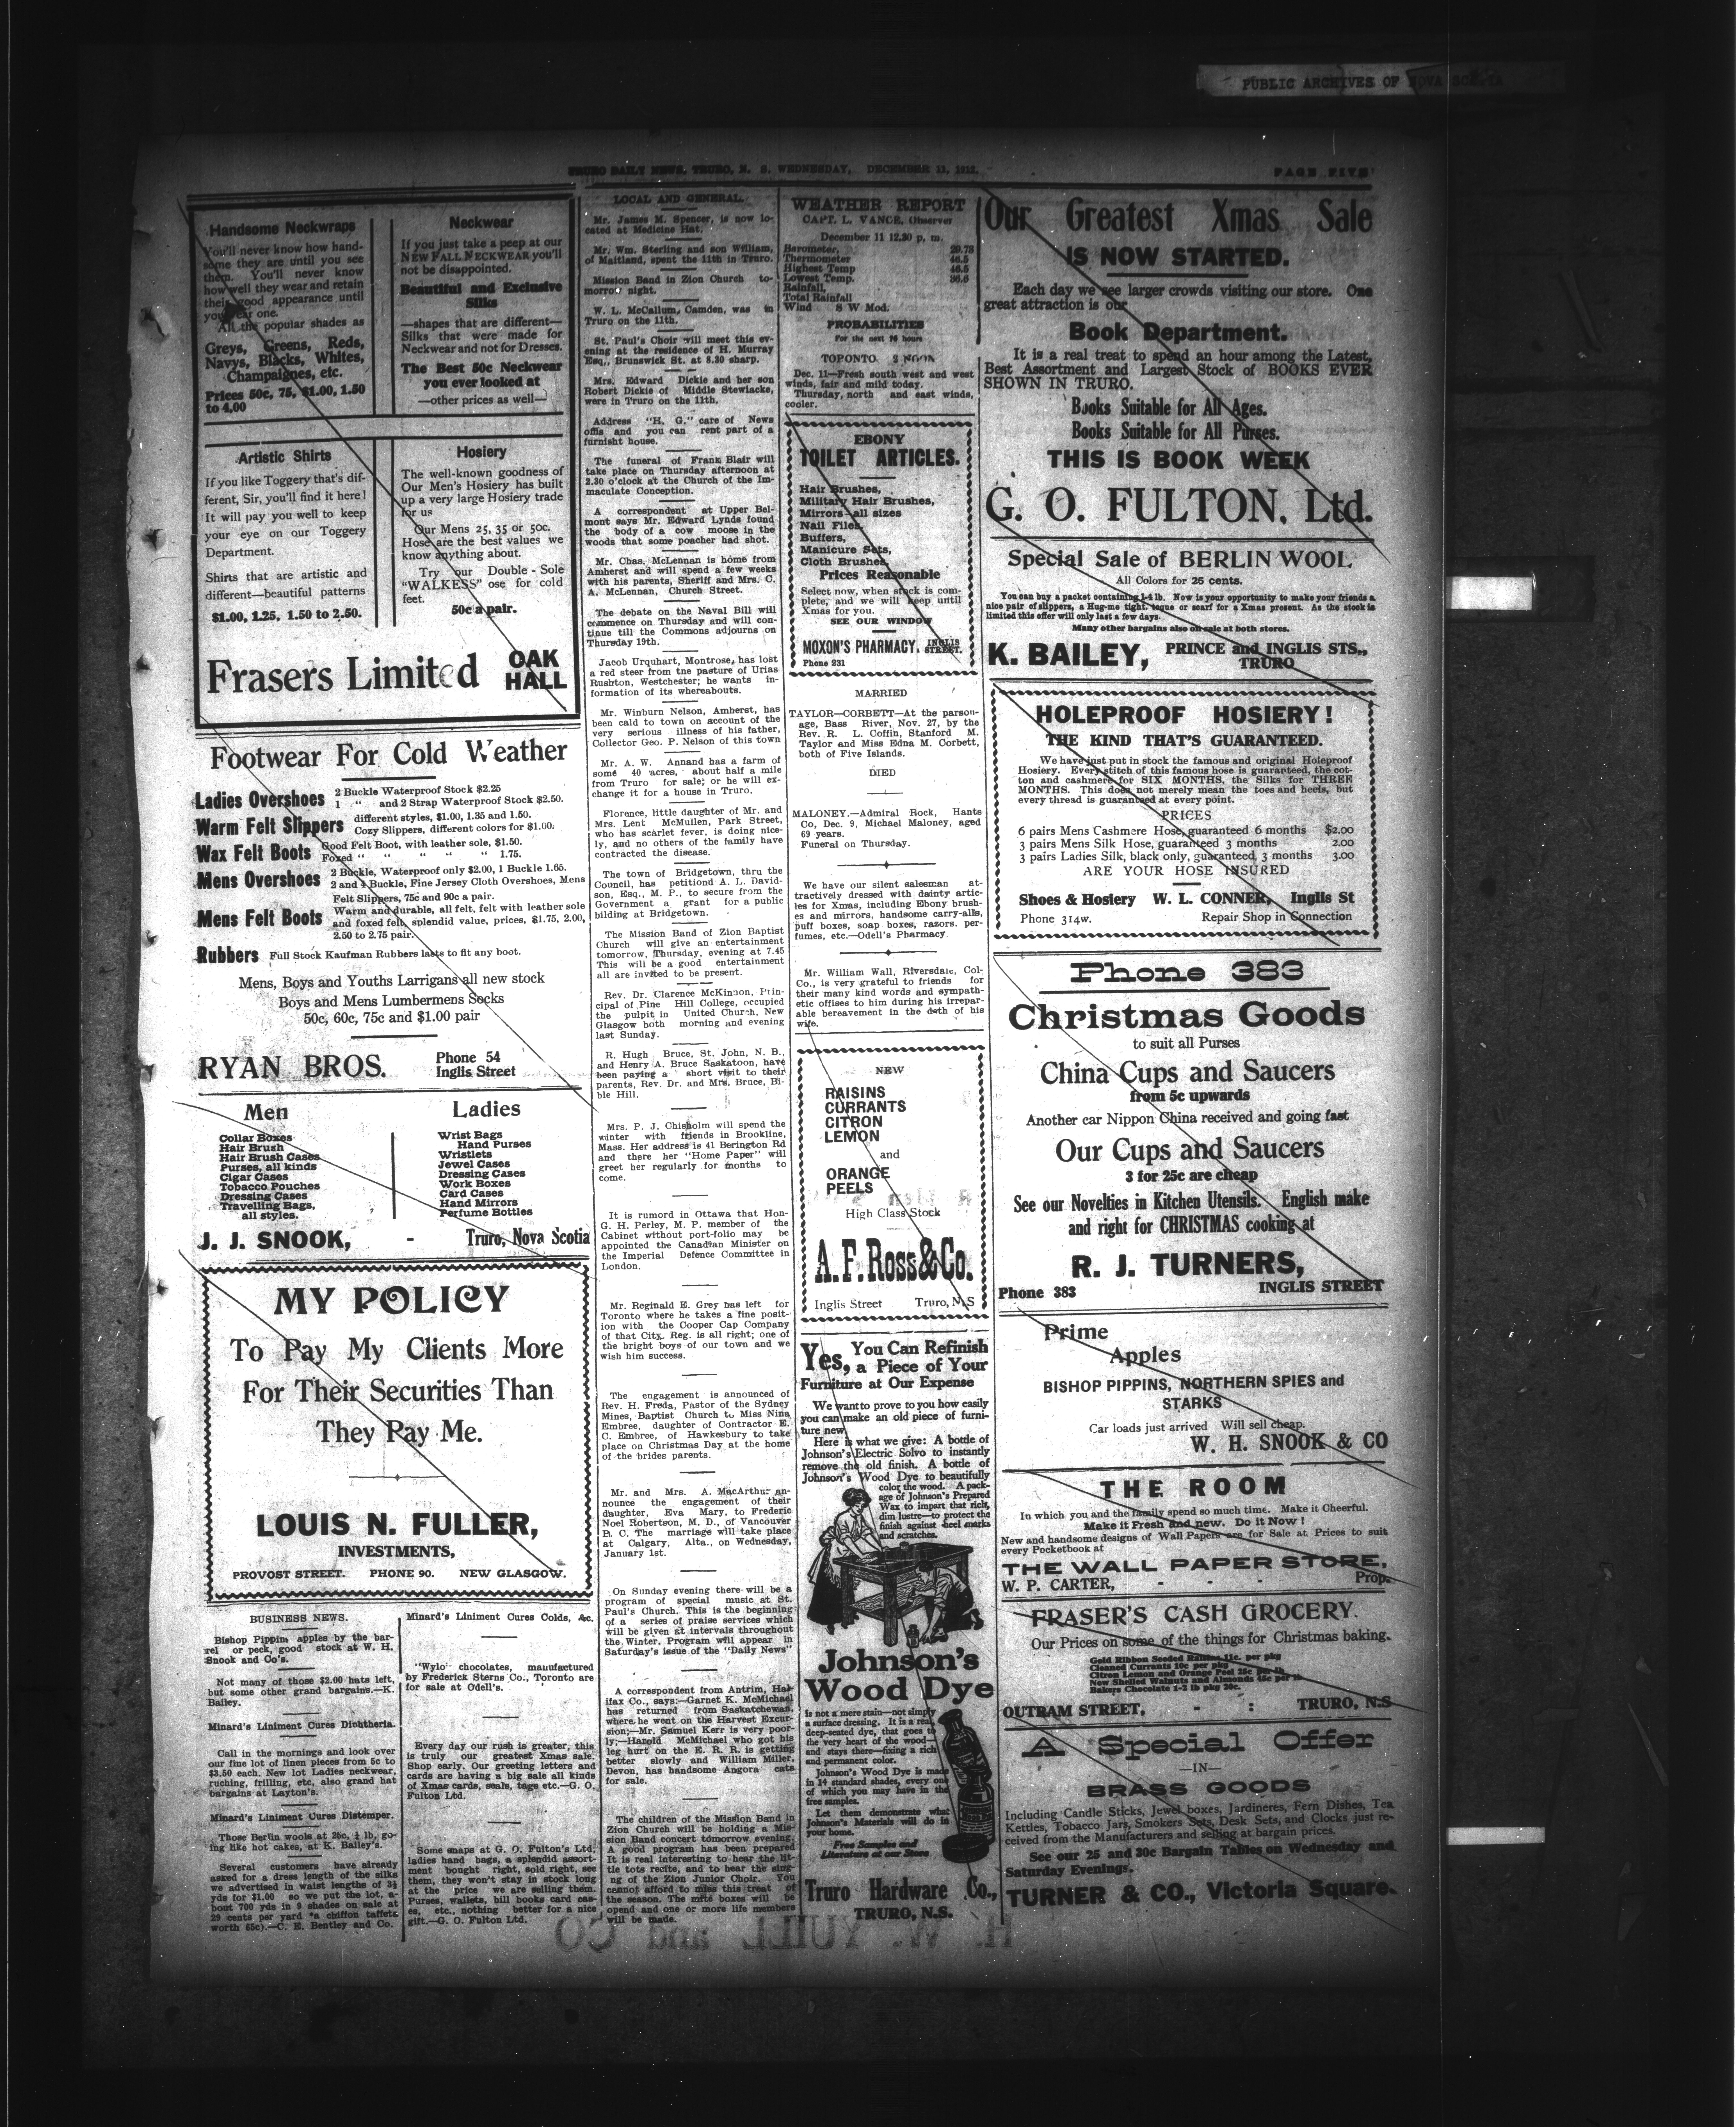 PUBLIC ARCHIVES OF NOVA SCOTIA
TRURO DAILY NEWS, TRURO, N. S. WEDNESDAY, DECEMBER 11, 1912.
PAGE FIVE
Handsome Neckwraps
You'll never know how hand-
some they are until you see
them. You'll never know
how well they wear and retain
their good appearance until
you wear one.
All the popular shades as
Greys, Greens, Reds,
Navys, Blacks, Whites,
Champaignes, etc.
Prices 50c, 75, $1.00, 1.50
to 4.00
Neckwear
If you just take a peep at our
NEW FALL NECKWEAR you'll
not be disappointed.
Beautiful and Exclusive
Silks
—shapes that are different—
Silks that were made for
Neckwear and not for Dresses.
The Best 50c Neckwear
you ever looked at
—other prices as well—
Artistic Shirts
If you like Toggery that's dif-
ferent, Sir, you'll find it here!
It will pay you well to keep
your eye on our Toggery
Department.
Shirts that are artistic and
different—beautiful patterns
$1.00, 1.25, 1.50 to 2.50.
Hosiery
The well-known goodness of
Our Men's Hosiery has built
up a very large Hosiery trade
for us
Our Mens 25, 35 or 50c.
Hose are the best values we
know anything about.
Try our Double - Sole
"WALKESS" ose for cold
feet.
50c a pair.
Frasers Limited OAK
HALL
Footwear For Cold Weather
Ladies Overshoes 2 Buckle Waterproof Stock $2.25
1 " and 2 Strap Waterproof Stock $2.50.
Warm Felt Slippers different styles, $1.00, 1.35 and 1.50.
Cozy Slippers, different colors for $1.00.
Wax Felt Boots Good Felt Boot, with leather sole, $1.50.
Foxed " " " " " 1.75.
Mens Overshoes 2 Buckle, Waterproof only $2.00, 1 Buckle 1.65.
2 and 4 Buckle, Fine Jersey Cloth Overshoes, Mens
Felt Slippers, 75c and 90c a pair.
Mens Felt Boots Warm and durable, all felt, felt with leather sole
and foxed felt, splendid value, prices, $1.75, 2.00,
2.50 to 2.75 pair.
Rubbers Full Stock Kaufman Rubbers lasts to fit any boot.
Mens, Boys and Youths Larrigans all new stock
Boys and Mens Lumbermens Socks
50c, 60c, 75c and $1.00 pair
RYAN BROS. Phone 54
Inglis Street
Men
Collar Boxes
Hair Brush
Hair Brush Cases
Purses, all kinds
Cigar Cases
Tobacco Pouches
Dressing Cases
Travelling Bags,
all styles.
Ladies
Wrist Bags
Hand Purses
Wristlets
Jewel Cases
Dressing Cases
Work Boxes
Card Cases
Hand Mirrors
Perfume Bottles
J. J. SNOOK, - Truro, Nova Scotia
MY POLICY
To Pay My Clients More
For Their Securities Than
They Pay Me.
LOUIS N. FULLER,
INVESTMENTS,
PROVOST STREET. PHONE 90. NEW GLASGOW.
BUSINESS NEWS.
Bishop Pippim apples by the bar-
rel or peck, good stock at W. H.
Snook and Co's.
Not many of those $2.00 hats left,
but some other grand bargains.—K.
Bailey.
Minard's Liniment Cures Diphtheria.
Call in the mornings and look over
our fine lot of linen pieces from 5c to
$3.50 each. New lot Ladies neckwear,
ruching, frilling, etc, also grand hat
bargains at Layton's.
Minard's Liniment Cures Distemper.
Those Berlin wools at 25c, ¼ lb, go-
ing like hot cakes, at K. Bailey's.
Several customers have already
asked for a dress length of the silks
we advertised in waist lengths of 3½
yds for $1.00 so we put the lot, a-
bout 700 yds in 9 shades on sale at
29 cents per yard *a chiffon taffets
worth 65c).—C. E. Bentley and Co.
Minard's Liniment Cures Colds, &c.
"Wylo" chocolates, manufactured
by Frederick Sterns Co., Toronto are
for sale at Odell's.
Every day our rush is greater, this
is truly our greatest Xmas sale.
Shop early. Our greeting letters and
cards are having a big sale all kinds
of Xmas cards, seals, tags etc.—G. O.
Fulton Ltd.
Some snaps at G. O. Fulton's Ltd,
ladies hand bags, a splendid assort-
ment bought right, sold right, see
them, they won't stay in stock long
at the price we are selling them.
Purses, wallets, bill books card cas-
es, etc., nothing better for a nice
gift.—G. O. Fulton Ltd.
LOCAL AND GENERAL.
Mr. James M. Spencer, is now lo-
cated at Medicine Hat.
Mr. Wm. Sterling and son William,
of Maitland, spent the 11th in Truro.
Mission Band in Zion Church to-
morrow night.
W. L. McCallum, Camden, was in
Truro on the 11th.
St. Paul's Choir will meet this ev-
ening at the residence of H. Murray
Esq., Brunswick St. at 8.30 sharp.
Mrs. Edward Dickie and her son
Robert Dickie of Middle Stewiacke,
were in Truro on the 11th.
Address "H. G." care of News
offis and you can rent part of a
furnisht house.
The funeral of Frank Blair will
take place on Thursday afternoon at
2.30 o'clock at the Church of the Im-
maculate Conception.
A correspondent at Upper Bel-
mont says Mr. Edward Lynds found
the body of a cow moose in the
woods that some poacher had shot.
Mr. Chas. McLennan is home from
Amherst and will spend a few weeks
with his parents, Sheriff and Mrs. C.
A. McLennan, Church Street.
The debate on the Naval Bill will
commence on Thursday and will con-
tinue till the Commons adjourns on
Thursday 19th.
Jacob Urquhart, Montrose, has lost
a red steer from tne pasture of Urias
Rushton, Westchester; he wants in-
formation of its whereabouts.
Mr. Winburn Nelson, Amherst, has
been cald to town on account of the
very serious illness of his father,
Collector Geo. P. Nelson of this town
Mr. A. W. Annand has a farm of
some 40 acres, about half a mile
from Truro for sale; or he will ex-
change it for a house in Truro.
Florence, little daughter of Mr. and
Mrs. Lent McMullen, Park Street,
who has scarlet fever, is doing nice-
ly, and no others of the family have
contracted the disease.
The town of Bridgetown, thru the
Council, has petitiond A. L. David-
son, Esq., M. P., to secure from the
Government a grant for a public
bilding at Bridgetown.
The Mission Band of Zion Baptist
Church will give an entertainment
tomorrow, Thursday, evening at 7.45
This will be a good entertainment
all are invited to be present.
Rev. Dr. Clarence McKinnon, Prin-
cipal of Pine Hill College, occupied
the pulpit in United Church, New
Glasgow both morning and evening
last Sunday.
R. Hugh Bruce, St. John, N. B.,
and Henry A. Bruce Saskatoon, have
been paying a short visit to their
parents, Rev. Dr. and Mrs. Bruce, Bi-
ble Hill.
Mrs. P. J. Chisholm will spend the
winter with friends in Brookline,
Mass. Her address is 41 Berington Rd
and there her "Home Paper" will
greet her regularly for months to
come.
It is rumord in Ottawa that Hon-
G. H. Perley, M. P. member of the
Cabinet without port-folio may be
appointed the Canadian Minister on
the Imperial Defence Committee in
London.
Mr. Reginald E. Grey has left for
Toronto where he takes a fine posit-
ion with the Cooper Cap Company
of that City. Reg. is all right; one of
the bright boys of our town and we
wish him success.
The engagement is announced of
Rev. H. Freda, Pastor of the Sydney
Mines, Baptist Church to Miss Nina
Embree, daughter of Contractor E.
C. Embree, of Hawkesbury to take
place on Christmas Day at the home
of the brides parents.
Mr. and Mrs. A. MacArthur an-
nounce the engagement of their
daughter, Eva Mary, to Frederic
Noel Robertson, M. D., of Vancouver
B. C. The marriage will take place
at Calgary, Alta., on Wednesday,
January 1st.
On Sunday evening there will be a
program of special music at St.
Paul's Church. This is the beginning
of a series of praise services which
will be given at intervals throughout
the Winter. Program will appear in
Saturday's issue of the "Daily News"
A correspondent from Antrim, Hal-
ifax Co., says:—Garnet K. McMichael
has returned from Saskatchewan,
where he went on the Harvest Excur-
sion;—Mr. Samuel Kerr is very poor-
ly;—Harold McMichael who got his
leg hurt on the E. R. R. is getting
better slowly and William Miller,
Devon, has handsome Angora cats
for sale.
The children of the Mission Band in
Zion Church will be holding a Mis-
sion Band concert tomorrow evening.
A good program has been prepared
It is real interesting to hear the lit-
tle tots recite, and to hear the sing-
ng of the Zion Junior Choir. You
cannot afford to miss this treat of
the season. The mite boxes will be
opend and one or more life members
will be made.
WEATHER REPORT
CAPT. L. VANCE, Observer
December 11 12.30 p. m.
Barometer, 29.78
Thermometer 46.5
Highest Temp 46.5
Lowest Temp. 36.6
Rainfall,
Total Rainfall
Wind S W Mod.
PROBABILITIES
For the next 36 hours
TOPONTO. 2 NOON
Dec. 11—Fresh south west and west
winds, fair and mild today.
Thursday, north and east winds,
cooler.
EBONY
TOILET ARTICLES.
Hair Brushes,
Military Hair Brushes,
Mirrors—all sizes
Nail Files,
Buffers,
Manicure Sets,
Cloth Brushes,
Prices Reasonable
Select now, when stock is com-
plete, and we will keep until
Xmas for you.
SEE OUR WINDOW
MOXON'S PHARMACY. INGLIS
STREET.
Phone 231
MARRIED
TAYLOR—CORBETT—At the parson-
age, Bass River, Nov. 27, by the
Rev. R. L. Coffin, Stanford M.
Taylor and Miss Edna M. Corbett,
both of Five Islands.
DIED
MALONEY.—Admiral Rock, Hants
Co, Dec. 9, Michael Maloney, aged
69 years.
Funeral on Thursday.
We have our silent salesman at-
tractively dressed with dainty artic-
les for Xmas, including Ebony brush-
es and mirrors, handsome carry-alls,
puff boxes, soap boxes, razors. per-
fumes, etc.—Odell's Pharmacy
Mr. William Wall, Riversdale, Col-
Co., is very grateful to friends for
their many kind words and sympath-
etic offises to him during his irrepar-
able bereavement in the deth of his
wife.
NEW
RAISINS
CURRANTS
CITRON
LEMON
and
ORANGE
PEELS
High Class Stock
A. F. Ross & Co.
Inglis Street Truro, N.S
Yes, You Can Refinish
a Piece of Your
Furniture at Our Expense
We want to prove to you how easily
you can make an old piece of furni-
ture new.
Here is what we give: A bottle of
Johnson's Electric Solvo to instantly
remove the old finish. A bottle of
Johnson's Wood Dye to beautifully
color the wood. A pack-
age of Johnson's Prepared
Wax to impart that rich,
dim lustre—to protect the
finish against heel marks
and scratches.
Johnson's
Wood Dye
is not a mere stain—not simply
a surface dressing. It is a real,
deep-seated dye, that goes to
the very heart of the wood—
and stays there—fixing a rich
and permanent color.
Johnson's Wood Dye is made
in 14 standard shades, every one
of which you may have in the
free samples.
Let them demonstrate what
Johnson's Materials will do in
your home.
Free Samples and
Literature at our Store
Truro Hardware Co.,
TRURO, N.S.
Our Greatest Xmas Sale
IS NOW STARTED.
Each day we see larger crowds visiting our store. One
great attraction is our
Book Department.
It is a real treat to spend an hour among the Latest,
Best Assortment and Largest Stock of BOOKS EVER
SHOWN IN TRURO.
Books Suitable for All Ages.
Books Suitable for All Purses.
THIS IS BOOK WEEK
G. O. FULTON, Ltd.
Special Sale of BERLIN WOOL
All Colors for 25 cents.
You can buy a packet containing 1-4 lb. Now is your opportunity to make your friends a
nice pair of slippers, a Hug-me tight, toque or scarf for a Xmas present. As the stock is
limited this offer will only last a few days.
Many other bargains also on sale at both stores.
K. BAILEY, PRINCE and INGLIS STS.,
TRURO
HOLEPROOF HOSIERY!
THE KIND THAT'S GUARANTEED.
We have just put in stock the famous and original Holeproof
Hosiery. Every stitch of this famous hose is guaranteed, the cot-
ton and cashmere for SIX MONTHS, the Silks for THREE
MONTHS. This does not merely mean the toes and heels, but
every thread is guaranteed at every point.
PRICES
6 pairs Mens Cashmere Hose, guaranteed 6 months $2.00
3 pairs Mens Silk Hose, guaranteed 3 months 2.00
3 pairs Ladies Silk, black only, guaranteed, 3 months 3.00
ARE YOUR HOSE INSURED
Shoes & Hosiery W. L. CONNER, Inglis St
Phone 314w. Repair Shop in Connection
Phone 383
Christmas Goods
to suit all Purses
China Cups and Saucers
from 5c upwards
Another car Nippon China received and going fast
Our Cups and Saucers
3 for 25c are cheap
See our Novelties in Kitchen Utensils. English make
and right for CHRISTMAS cooking at
R. J. TURNERS,
Phone 383 INGLIS STREET
Prime
Apples
BISHOP PIPPINS, NORTHERN SPIES and
STARKS
Car loads just arrived Will sell cheap.
W. H. SNOOK & CO
THE ROOM
In which you and the family spend so much time. Make it Cheerful.
Make it Fresh and new. Do it Now!
New and handsome designs of Wall Papers are for Sale at Prices to suit
every Pocketbook at
THE WALL PAPER STORE,
W. P. CARTER, - - - Prop.
FRASER'S CASH GROCERY.
Our Prices on some of the things for Christmas baking.
Gold Ribbon Seeded Raisins 11c. per pkg
Cleaned Currants 10c per pkg
Citron Lemon and Orange Peel 25c per lb
New Shelled Walnuts and Almonds 45c per lb
Bakers Chocolate 1-2 lb pkg 20c.
OUTRAM STREET, - : TRURO, N.S
A Special Offer
—IN—
BRASS GOODS
Including Candle Sticks, Jewel boxes, Jardineres, Fern Dishes, Tea
Kettles, Tobacco Jars, Smokers Sets, Desk Sets, and Clocks just re-
ceived from the Manufacturers and selling at bargain prices.
See our 25 and 30c Bargain Tables on Wednesday and
Saturday Evenings.
TURNER & CO., Victoria Square.
H. W. YUILL and CO